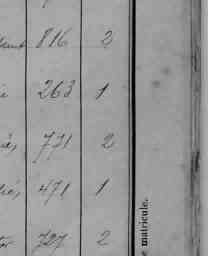 816 2
263 1
771 2
471 1
727 2
matricule.